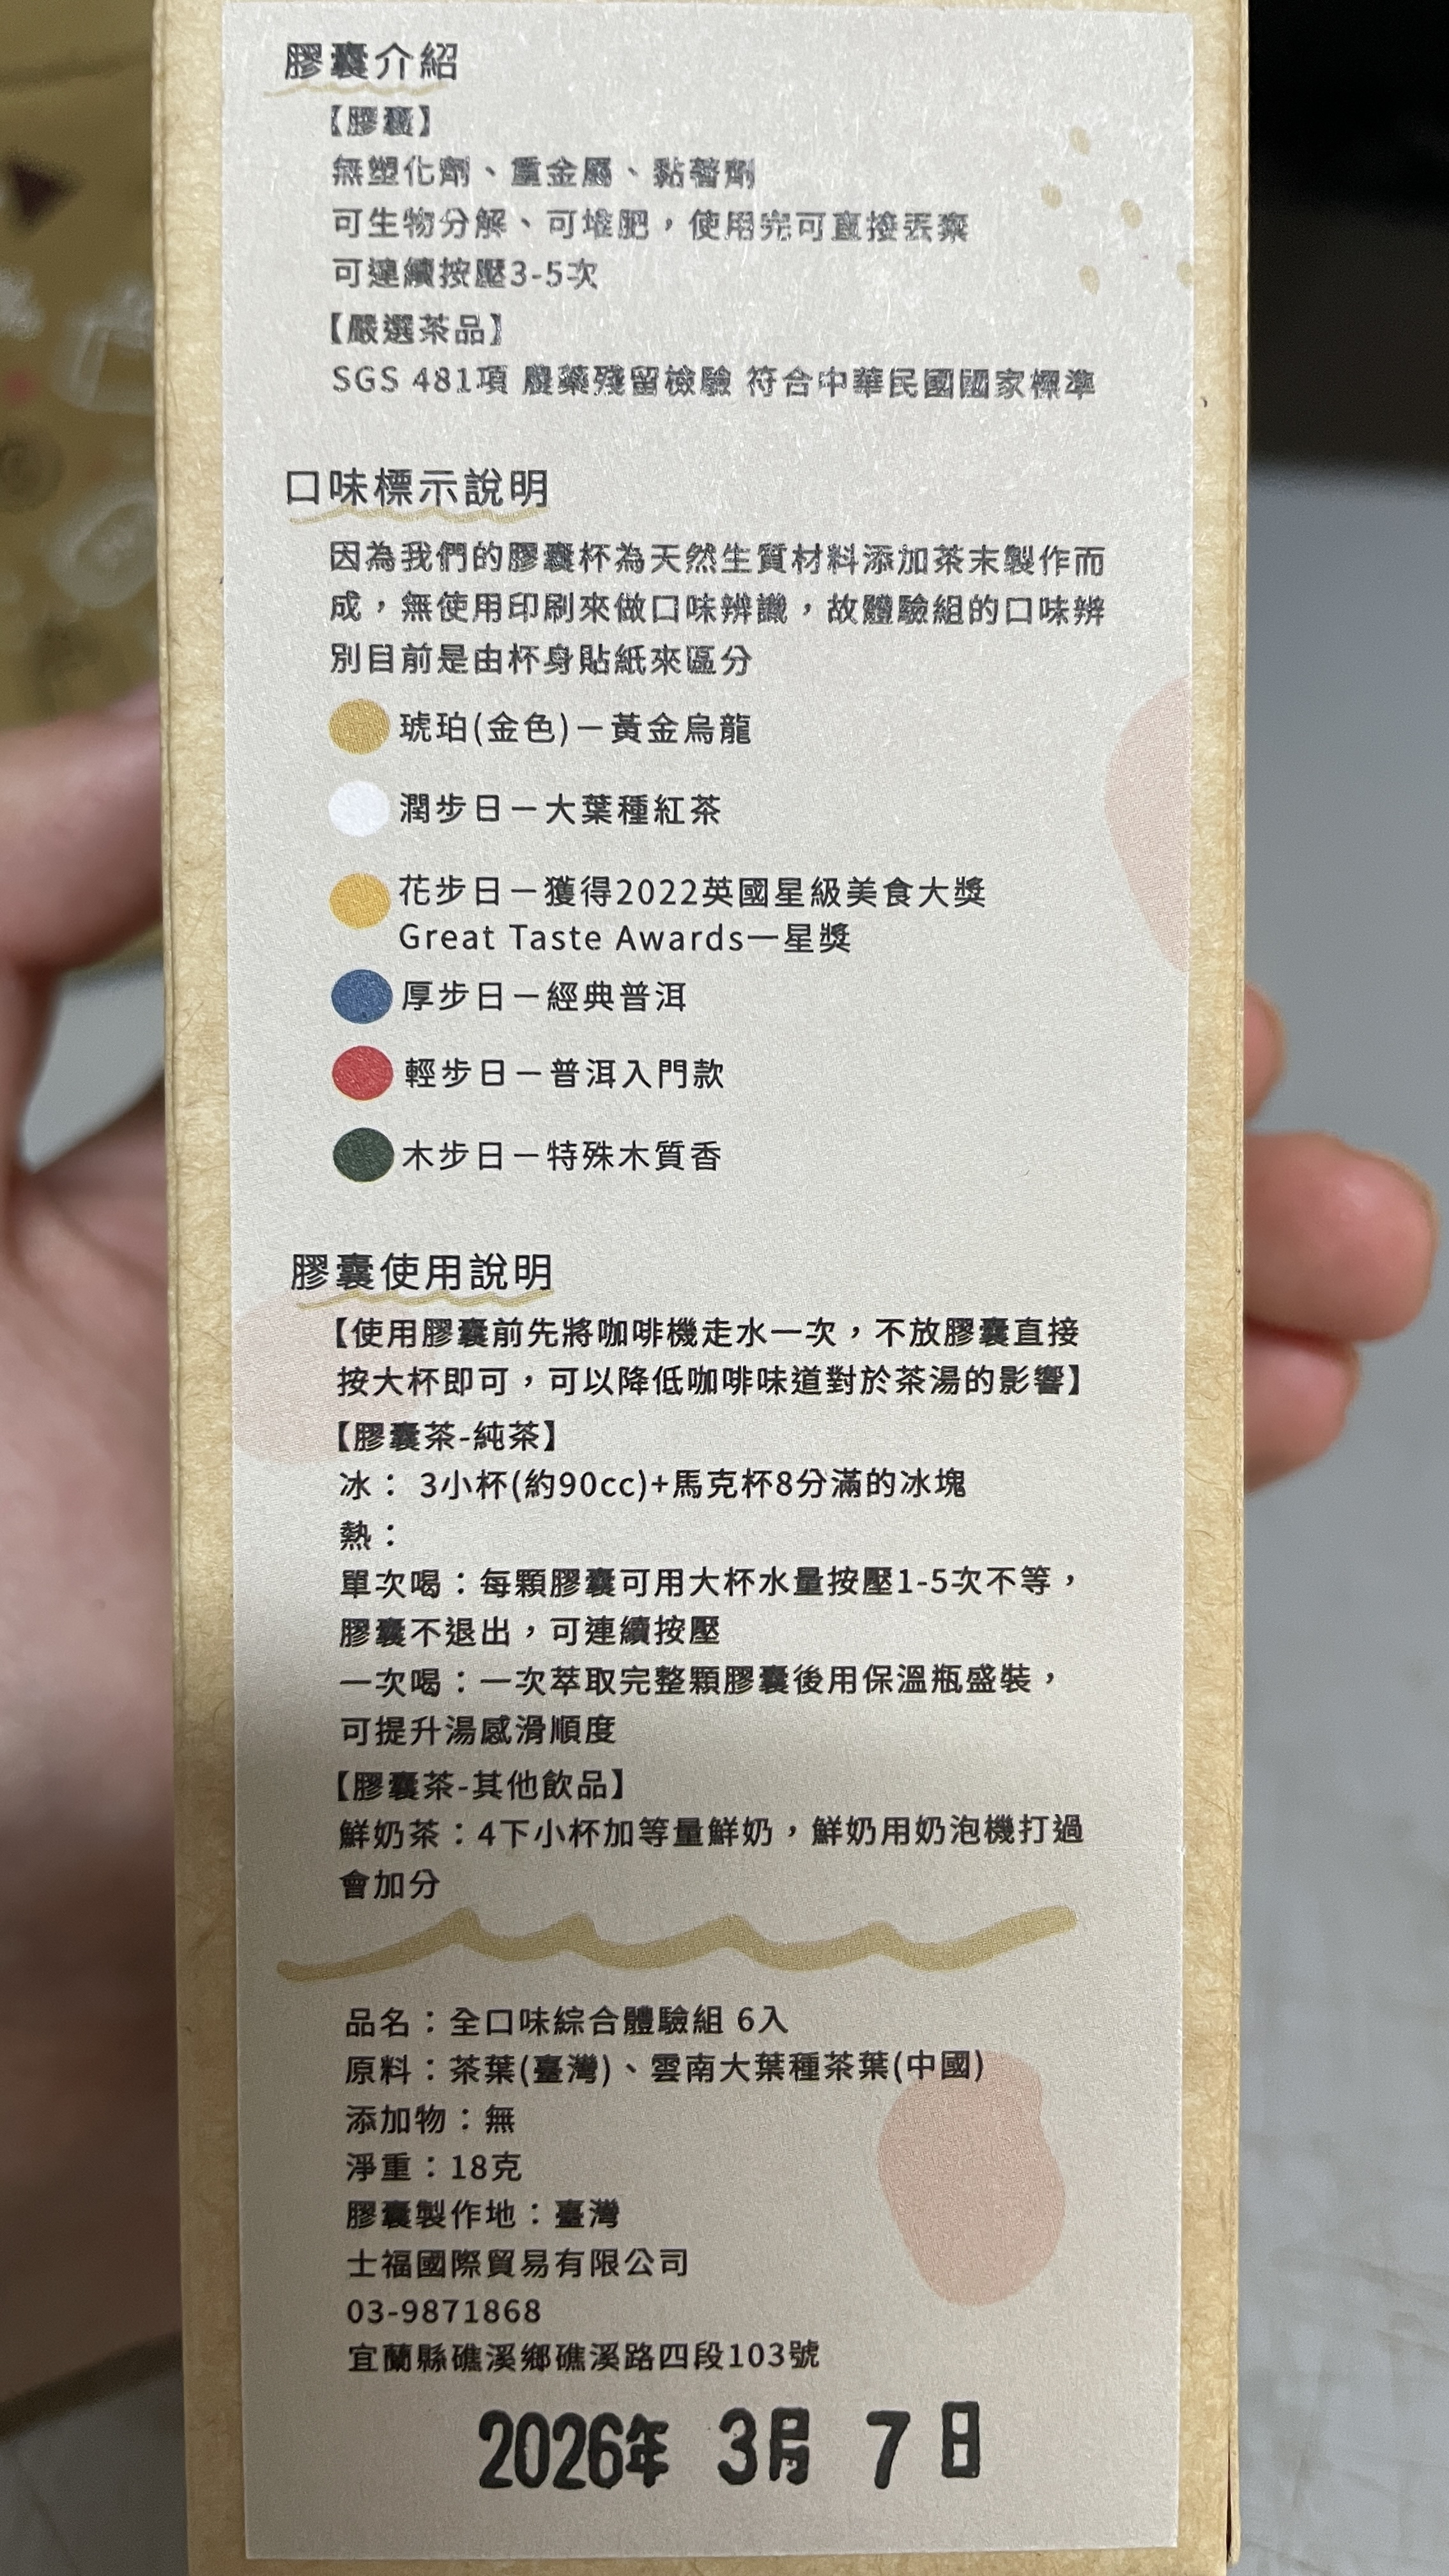 膠囊介紹
【膠囊】
無塑化劑、重金屬、黏著劑
可生物分解、可堆肥，使用完可直接丟棄
可連續按壓3-5次
【嚴選茶品】
SGS 481項 農藥殘留檢驗 符合中華民國國家標準
口味標示說明
因為我們的膠囊杯為天然生質材料添加茶末製作而
成，無使用印刷來做口味辨識，故體驗組的口味辨
別目前是由杯身貼紙來區分
琥珀(金色)－黃金烏龍
潤步日－大葉種紅茶
花步日－獲得2022英國星級美食大獎
Great Taste Awards一星獎
厚步日－經典普洱
輕步日－普洱入門款
木步日－特殊木質香
膠囊使用說明
【使用膠囊前先將咖啡機走水一次，不放膠囊直接
按大杯即可，可以降低咖啡味道對於茶湯的影響】
【膠囊茶-純茶】
冰： 3小杯(約90cc)+馬克杯8分滿的冰塊
熱：
單次喝：每顆膠囊可用大杯水量按壓1-5次不等，
膠囊不退出，可連續按壓
一次喝：一次萃取完整顆膠囊後用保溫瓶盛裝，
可提升湯感滑順度
【膠囊茶-其他飲品】
鮮奶茶：4下小杯加等量鮮奶，鮮奶用奶泡機打過
會加分
品名：全口味綜合體驗組 6入
原料：茶葉(臺灣)、雲南大葉種茶葉(中國)
添加物：無
淨重：18克
膠囊製作地：臺灣
士福國際貿易有限公司
03-9871868
宜蘭縣礁溪鄉礁溪路四段103號
2026年 3月 7日